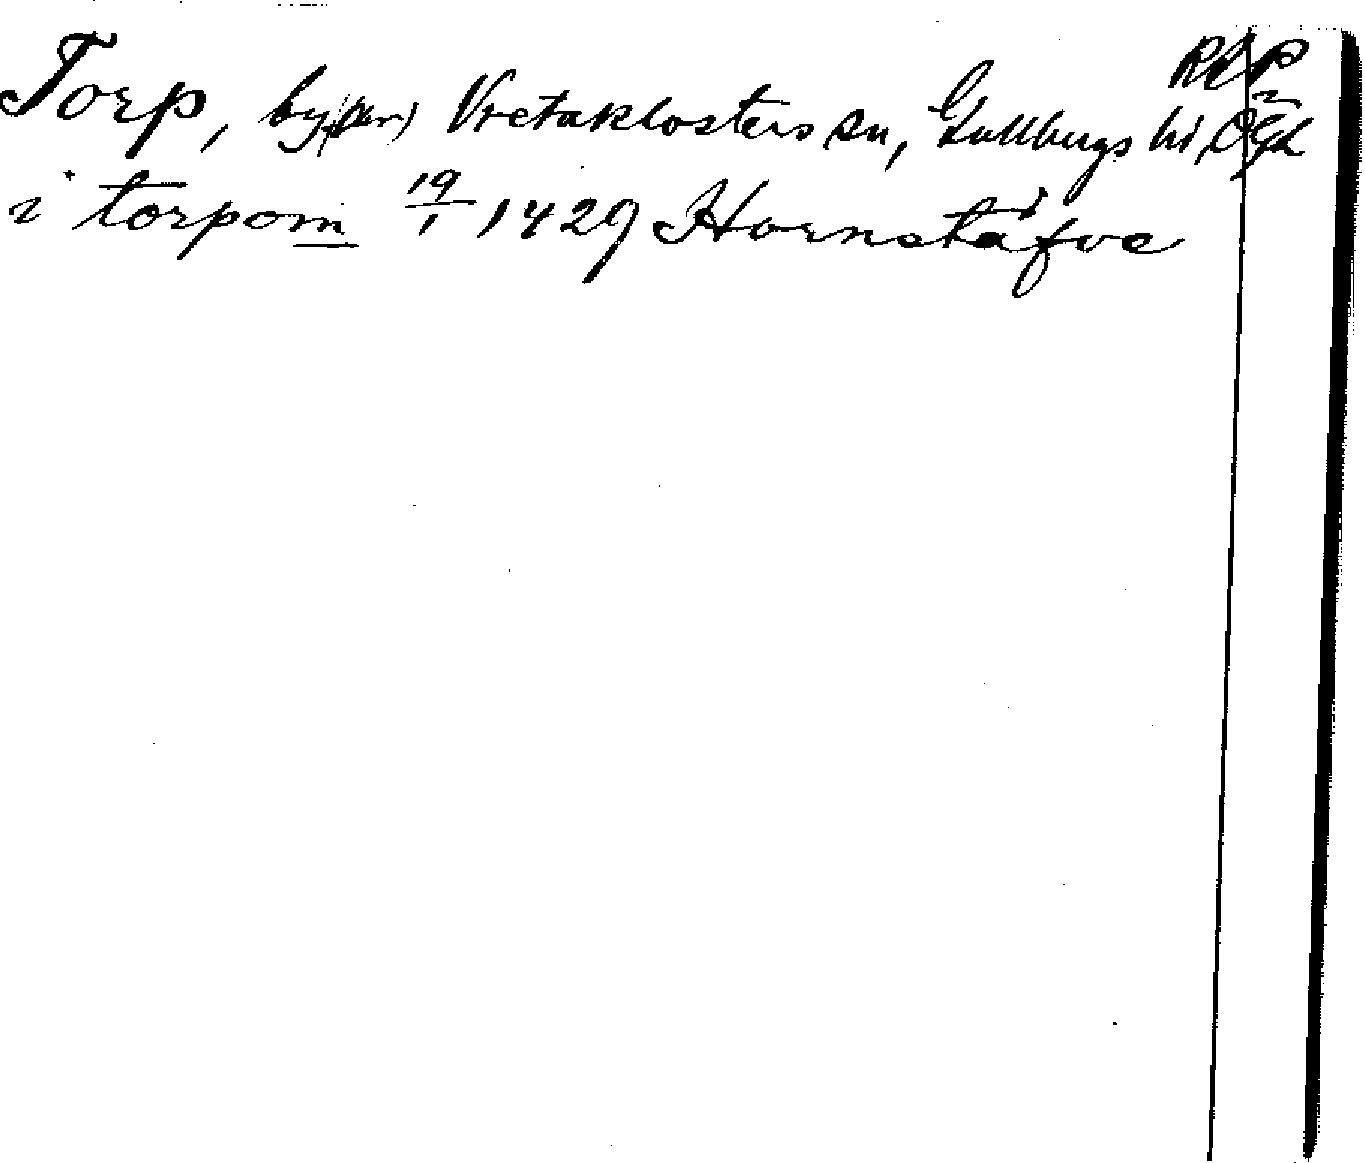 RAP
Torp, by(ar) Vretaklosters sn, Gullbergs hd, Ögl
i torpom 19/1 1429 Hornstäfve